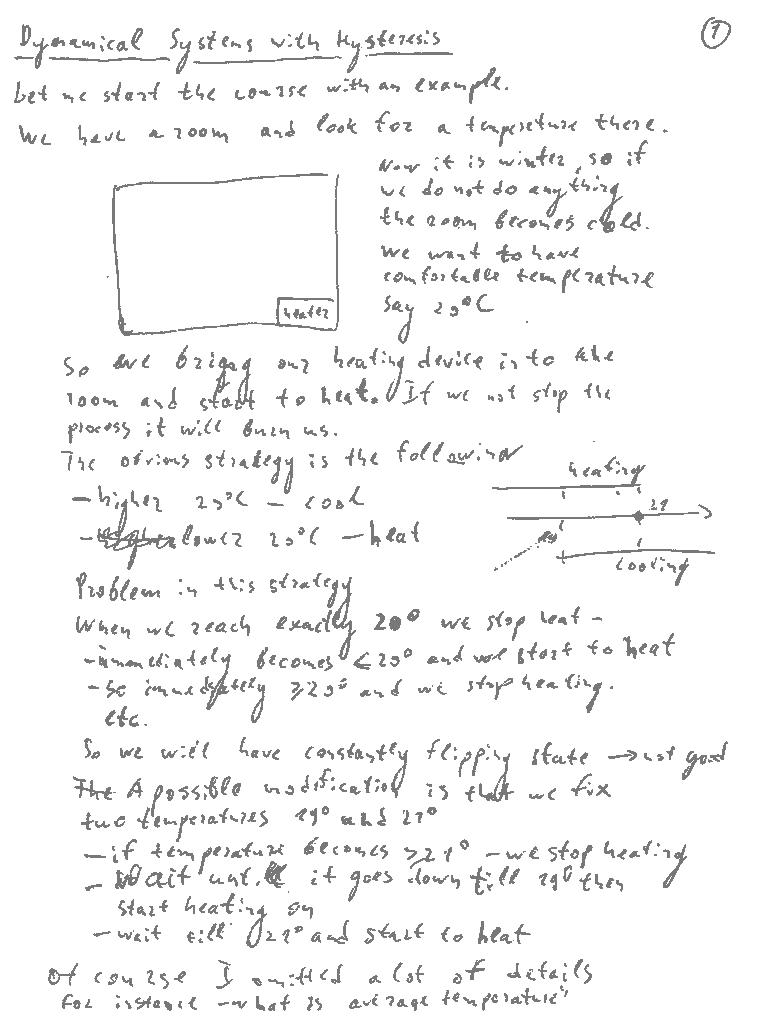 1
Dynamical Systems with Hysteresis
Let me start the course with an example.
We have a room and look for a temperature there.
Now it is winter, so if
we do not do anything
the room becomes cold.
We want to have
comfortable temperature
say 20°C
heater
So we bring our heating device into the
room and start to heat. If we not stop the
process it will burn us.
The obvious strategy is the following
heating
– higher 20°C – cool
21
– lower 20°C – heat
19
cooling
Problem in this strategy
When we reach exactly 20° we stop heat –
– immediately becomes < 20° and we start to heat
– So immediately ⩾ 20° and we stop heating.
etc.
So we will have constantly flipping state → not good
A possible modification is that we fix
two temperatures 19° and 21°
– if temperature becomes > 21° – we stop heating
– Wait until it goes down till 19° then
start heating on
– wait till 21° and start to heat
Of course I omitted a lot of details
For instance – what is average temperature"